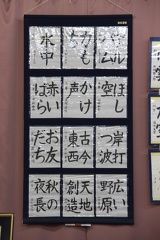 力もち
水中
ほし空
かけ声
赤いばら
岸打つ波
古今東西
お友だち
広い野原
天地創造
秋の夜長